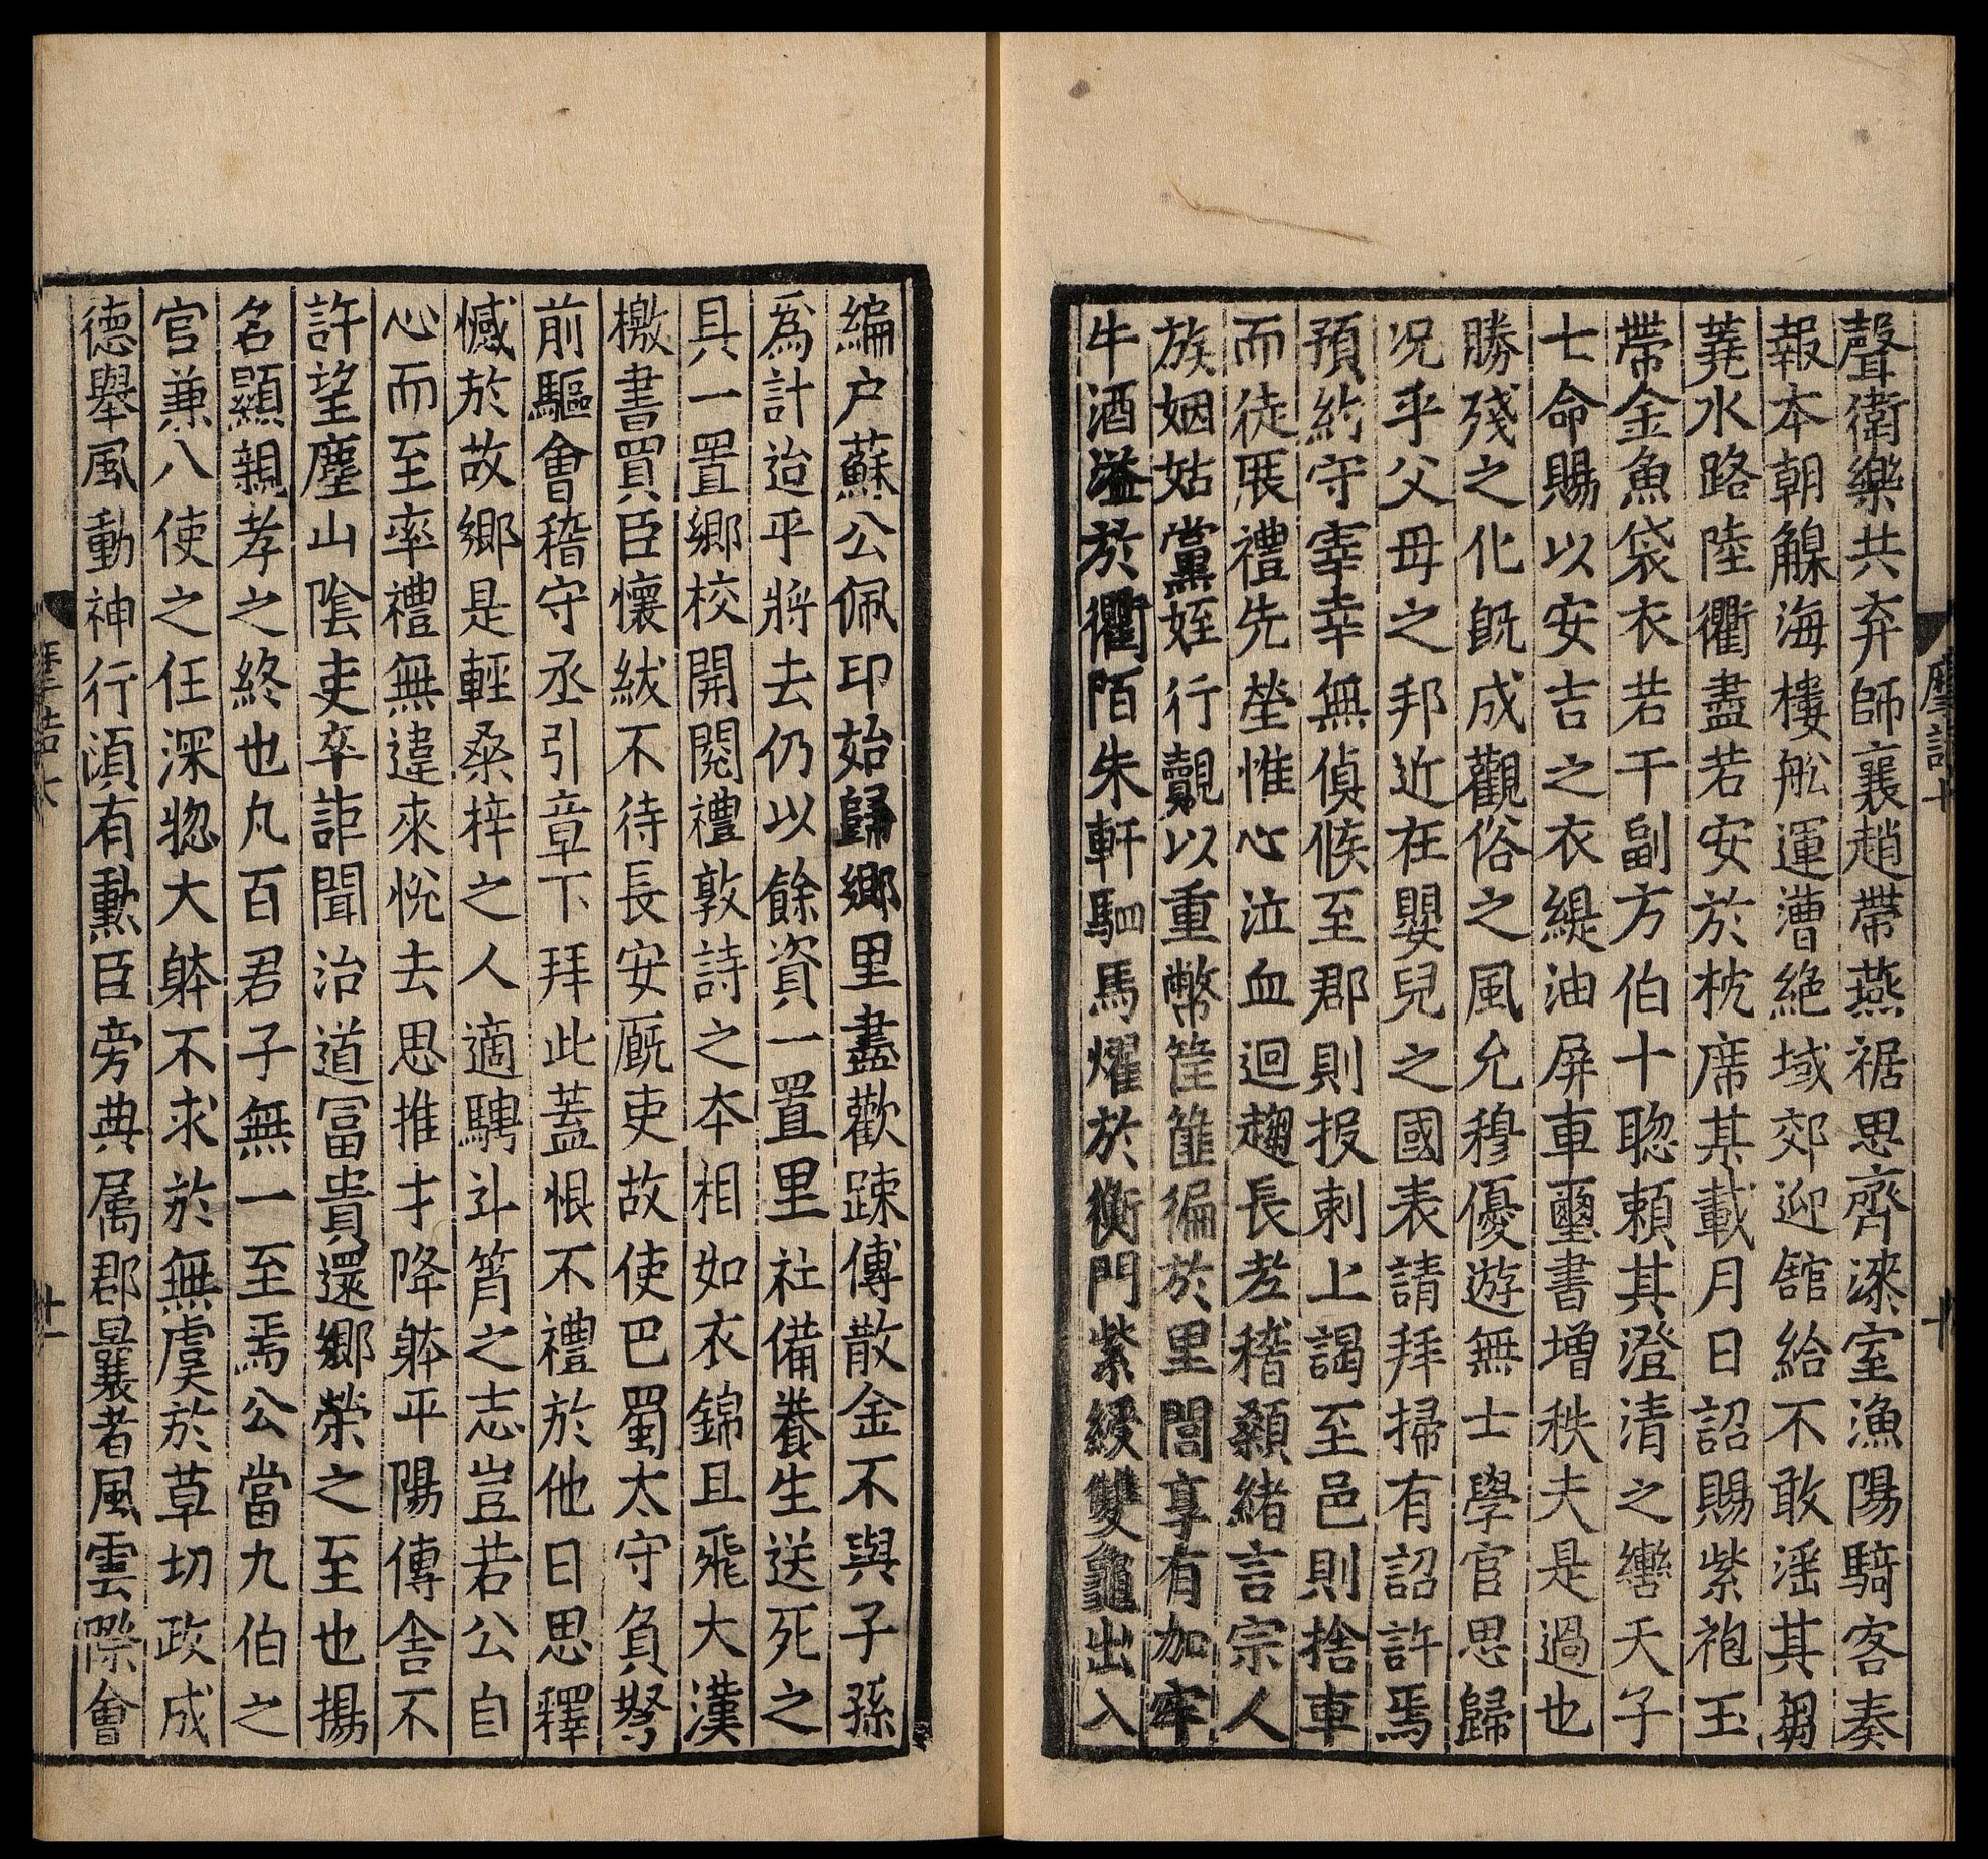 聲衛樂共弃師襄趙帶燕裾思齊漆室漁陽騎客奏
報本朝艨海樓舩運漕絶域郊迎舘給不敢滛其芻
蕘水路陸衢盡若安於枕席其載月日詔賜紫袍玉
帶金魚袋衣若干副方伯十聦賴其澄清之轡天子
七命賜以安吉之衣緹油屏車璽書増秩夫是過也
勝殘之化旣成觀俗之風允穆優遊無士學官思歸
况乎父母之邦近在嬰兒之國表請拜掃有詔許焉
預約守宰幸無偵候至郡則投刺上謁至邑則捨車
而徒展禮先塋惟心泣血迴趨長老稽顙緒言宗人
族姻姑黨姪行覿以重幣筐篚徧於里閭享有加牢
牛酒溢於衢陌朱軒駟馬燿於衡門紫綬雙龜出入
編户蘇公佩印始歸郷里盡歡踈傅散金不與子孫
爲計迨乎將去仍以餘資一置里社備養生送死之
具一置郷校開閱禮敦詩之本相如衣錦且飛大漢
檄書買臣懷紱不待長安厩吏故使巴蜀太守負弩
前驅會稽守丞引章下拜此蓋恨不禮於他日思釋
憾於故郷是輕桑梓之人適騁斗筲之志豈若公自
心而至率禮無違來悅去思推才降躰平陽傳舎不
許望塵山隂吏卒詎聞治道冨貴還郷榮之至也揚
名顯親孝之終也凡百君子無一至焉公當九伯之
官兼八使之任深惣大躰不求於無虞於草切政成
德舉風動神行湏有勲臣旁典属郡曩者風雲際會